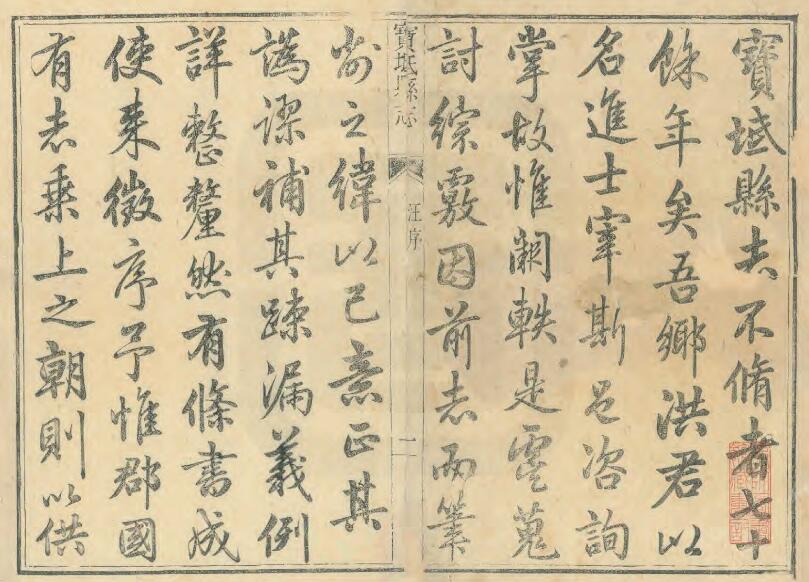 寶坻縣志不脩者七十
餘年矣吾鄉洪君以
名進士宰斯邑咨詢
掌故惟闕軼是虞蒐
討綜覈因前志而筆
寶坻縣志 汪序 一
削之緯以己意正其
譌謬補其疎漏義例
詳整釐然有條書成
使來徵序予惟郡國
有志乘上之朝則以供